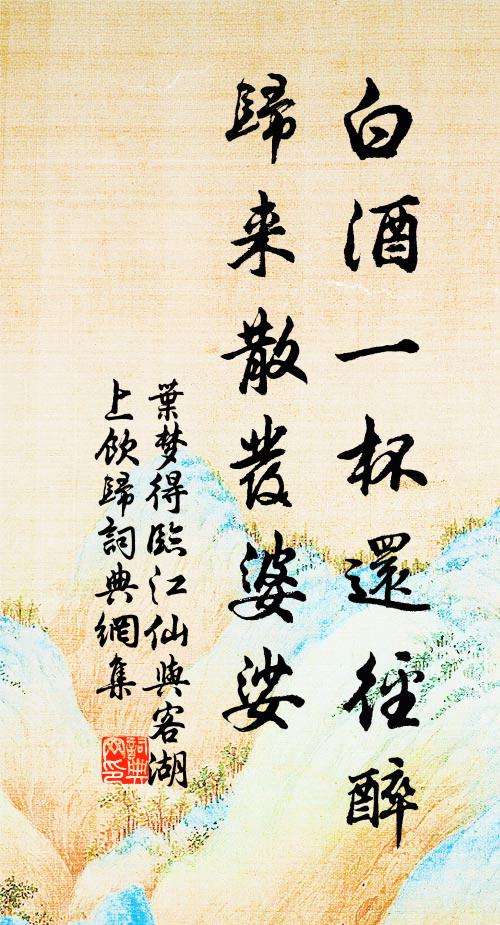 白酒一杯還徑醉
歸来散發婆娑
葉梦得臨江仙與客湖
上飲歸詞典網集
詞典
网印